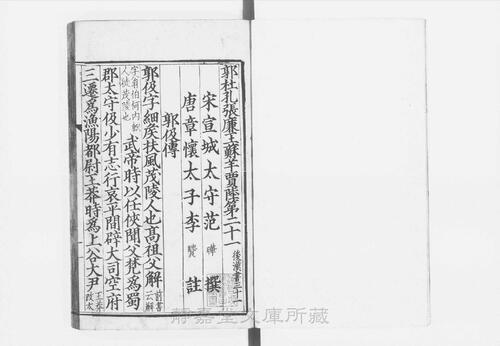 郭杜孔張廉王蘇羊賈陸第二十一 後漢書三十一
宋宣城太守范曄撰
唐章懷太子李賢註
郭伋傳
郭伋字細侯扶風茂陵人也高祖父解前書云解
字翁伯河内軹人徙茂陵也武帝時以任俠聞父梵爲蜀
郡太守伋少有志行哀平間辟大司空府
三遷爲漁陽都尉王莽時爲上谷大尹王莽改太
静嘉堂文庫所藏